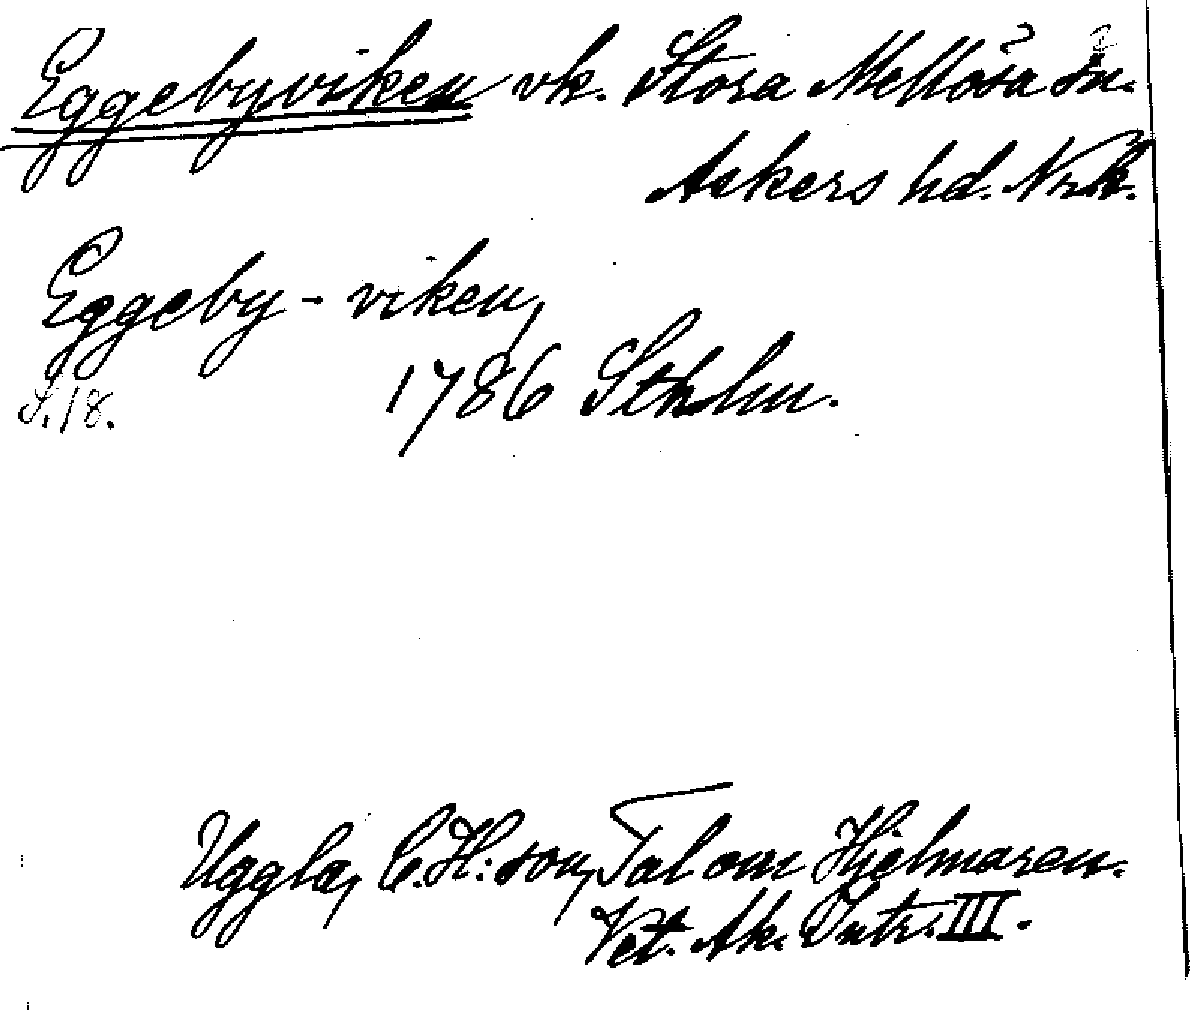 Eggebyviken vk. Stora Mellösa sn.
Askers hd. Nrk.
Eggeby-viken,
S. 18. 1786 Sthlm.
Uggla, C. H:son, Tal om Hjelmaren.
Vet. Ak. Intr. III.